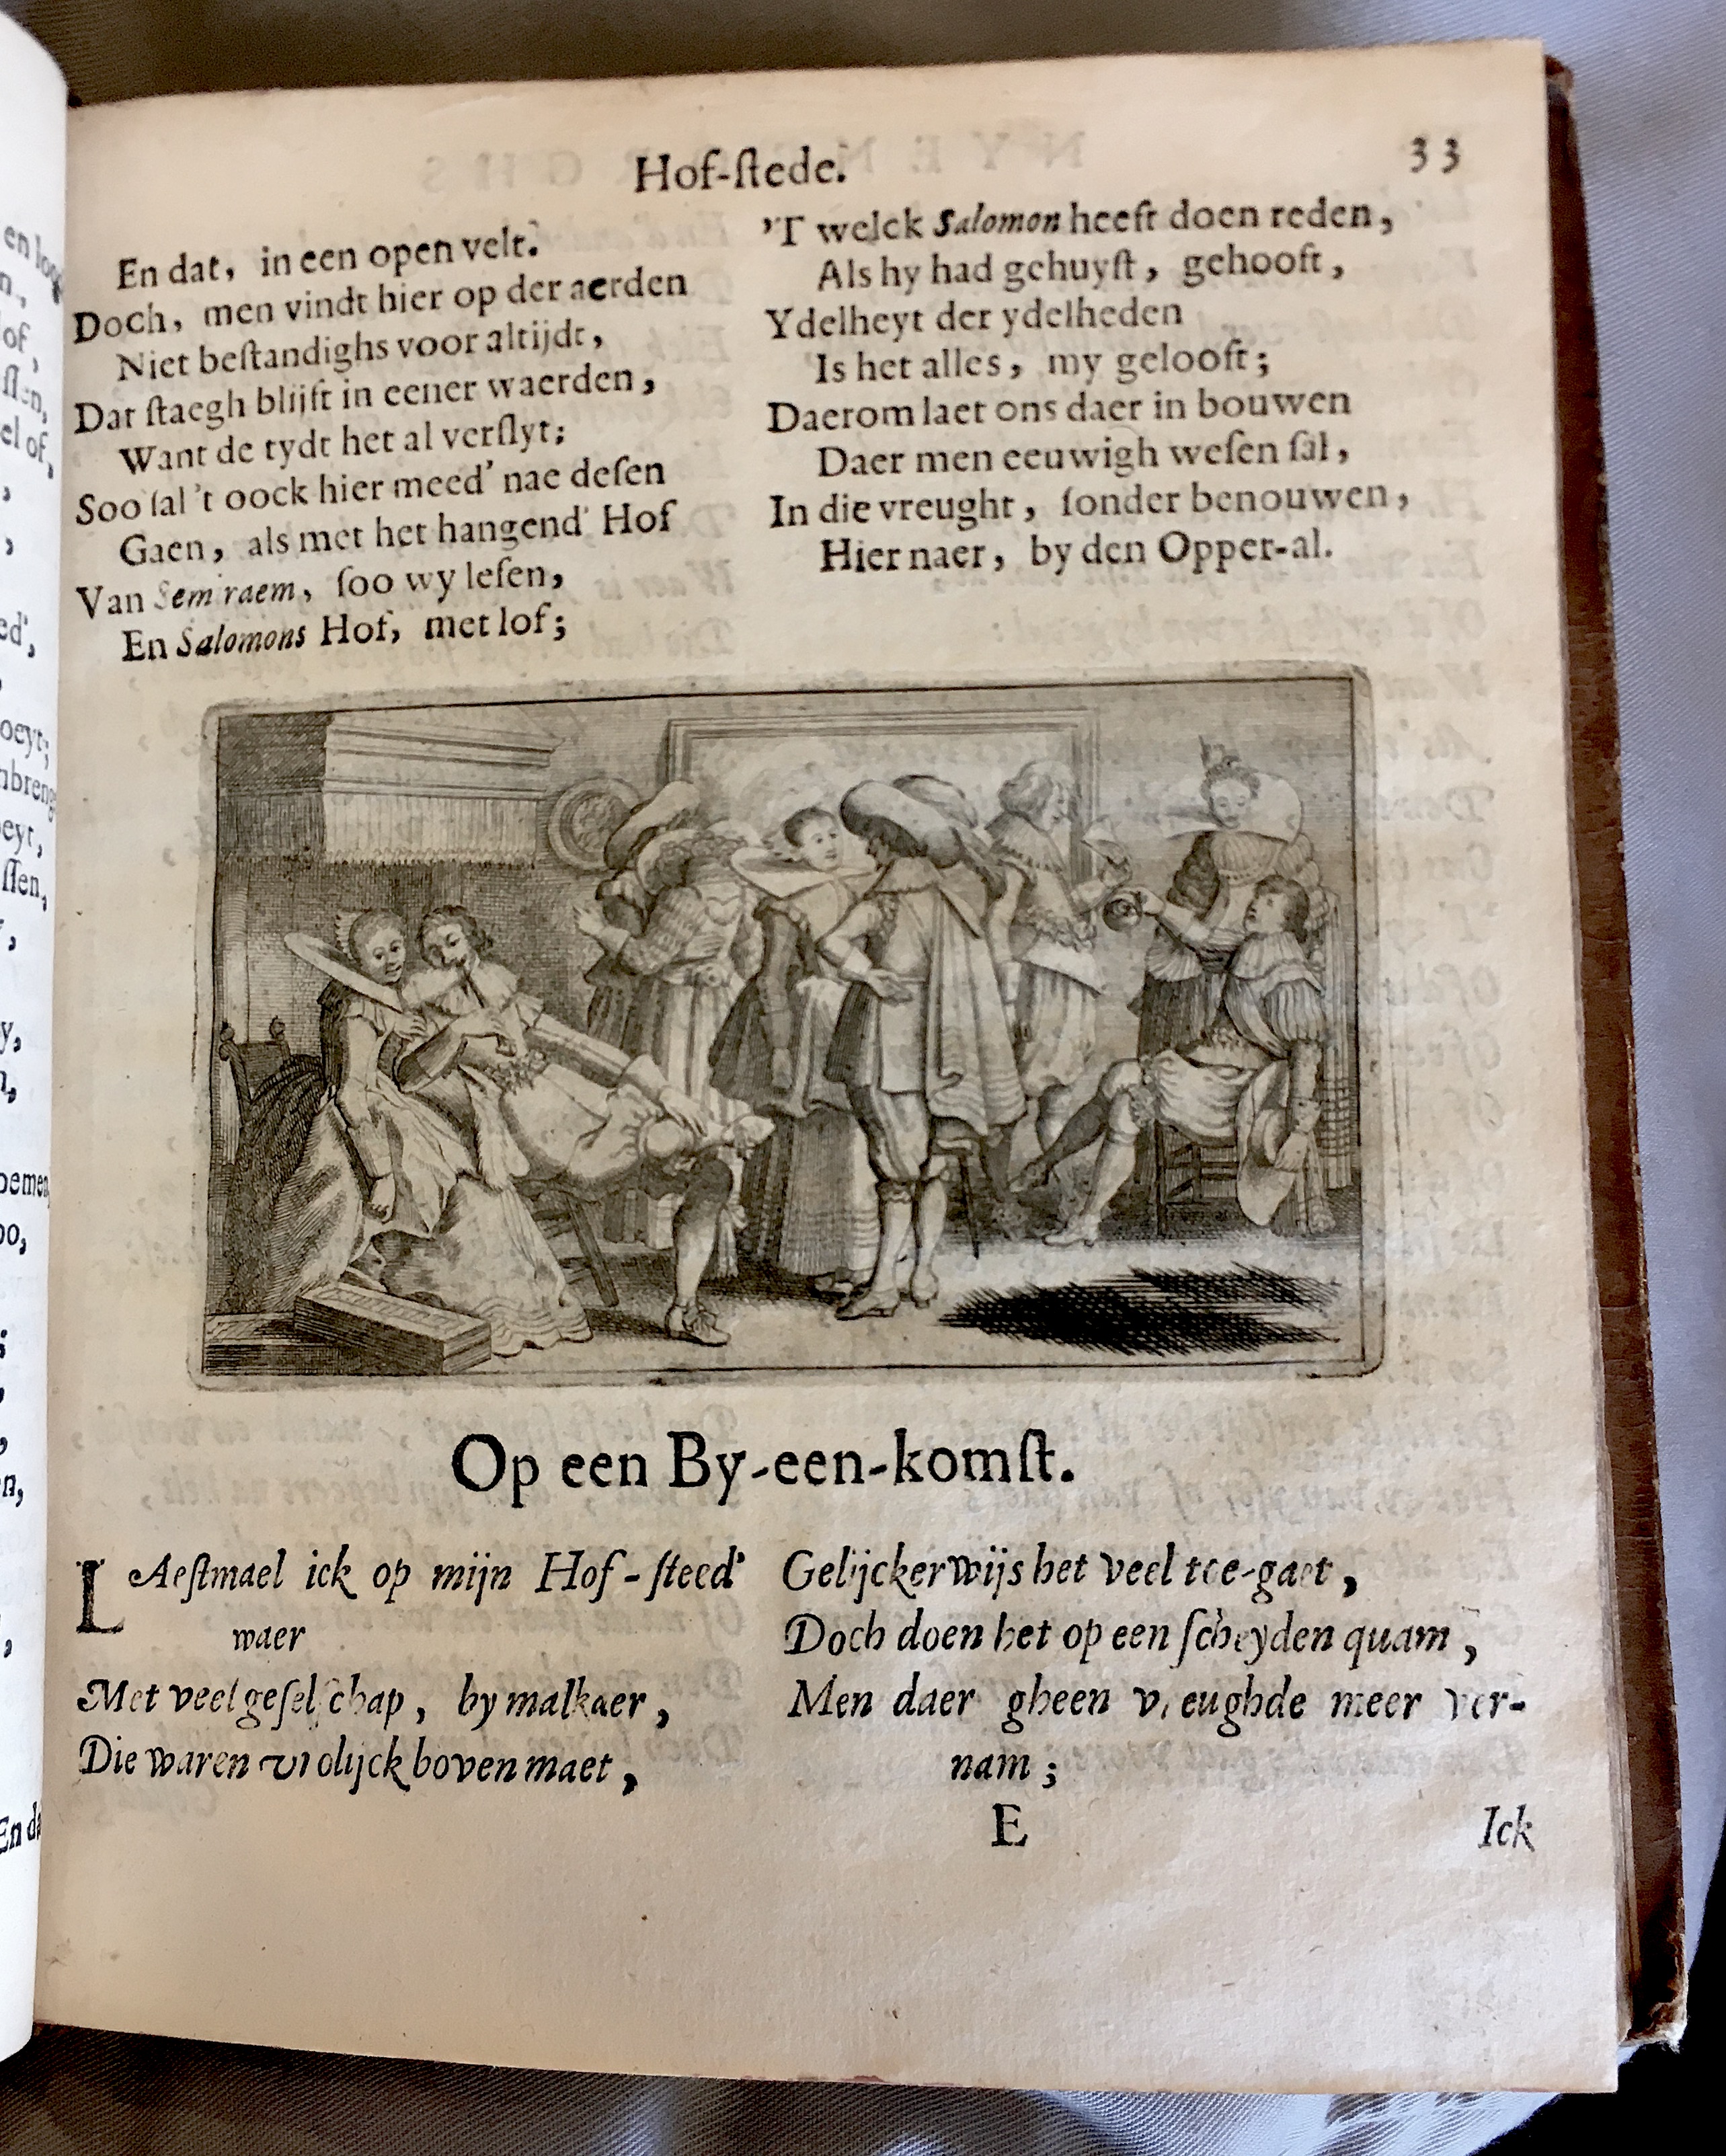 Hof-ſtede.
33
En dat, in een open velt.
Doch, men vindt hier op der aerden
Niet beſtandighs voor altijdt,
Dat ſtaegh blijft in eener waerden,
Want de tydt het al verſlyt;
Soo ſal 't oock hier meed' nae deſen
Gaen, als met het hangend' Hof
Van Semiraem, ſoo wy leſen,
En Salomons Hof, met lof;
'T welck Salomon heeft doen reden,
Als hy had gehuyſt, gehooft,
Ydelheyt der ydelheden
Is het alles, my gelooft;
Daerom laet ons daer in bouwen
Daer men eeuwigh weſen ſal,
In die vreught, ſonder benouwen,
Hier naer, by den Opper-al.
Op een By-een-komſt.
LAeſtmael ick op mijn Hof-ſteed'
waer
Met veel geſelſchap, by malkaer,
Die waren vrolijck boven maet,
Gelijckerwijs het veel toe-gaet,
Doch doen het op een ſcheyden quam,
Men daer gheen vreughde meer ver-
nam;
E
Ick
en
of,
el of,
ed',
oeyt;
eyt,
ſſen,
y,
oemen
oo,
En da